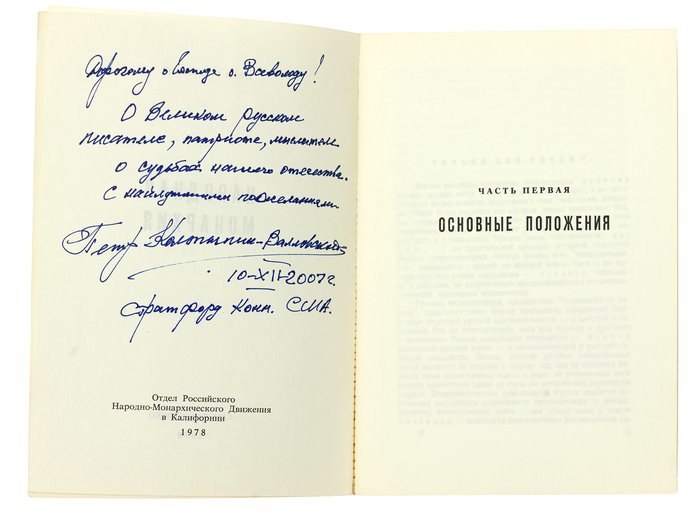 Дорогому о Господе о. Всеволоду!
О Великом русском
писателе, патриоте, мыслителе
о судьбах нашего отечества.
С наилучшими пожеланиями
Петр Колтыпин-Валловской
10-XII-2007г.
Стратфорд Конн. США.
Отдел Российского
Народно-Монархического Движения
в Калифорнии
1978
ЧАСТЬ ПЕРВАЯ
ОСНОВНЫЕ ПОЛОЖЕНИЯ